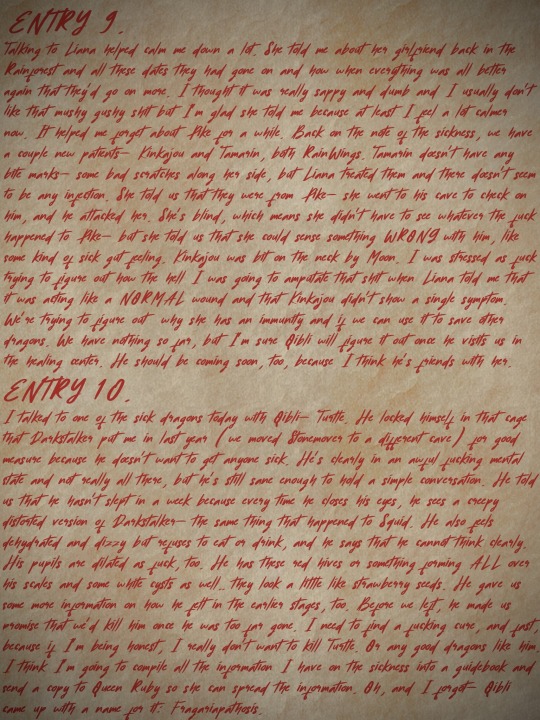 ENTRY 9.
Talking to Liana helped calm me down a lot. She told me about her girlfriend back in the
Rainforest and all these dates they had gone on and how when everything was all better
again that they'd go on more. I thought it was really sappy and dumb and I usually don't
like that mushy gushy shit but I'm glad she told me because at least I feel a lot calmer
now. It helped me forget about Pike for a while. Back on the note of the sickness, we have
a couple new patients— Kinkajou and Tamarin, both RainWings. Tamarin doesn't have any
bite marks— some bad scratches along her side, but Liana treated them and there doesn't seem
to be any infection. She told us that they were from Pike— she went to his cave to check on
him, and he attacked her. She's blind, which means she didn't have to see whatever the fuck
happened to Pike— but she told us that she could sense something WRONG with him, like
some kind of sick gut feeling. Kinkajou was bit on the neck by Moon. I was stressed as fuck
trying to figure out how the hell I was going to amputate that shit when Liana told me that
it was acting like a NORMAL wound and that Kinkajou didn't show a single symptom.
We're trying to figure out why she has an immunity and if we can use it to save other
dragons. We have nothing so far, but I'm sure Qibli will figure it out once he visits us in
the healing center. He should be coming soon, too, because I think he's friends with her.
ENTRY 10.
I talked to one of the sick dragons today with Qibli— Turtle. He locked himself in that cage
that Darkstalker put me in last year (we moved Stonemover to a different cave) for good
measure because he doesn't want to get anyone sick. He's clearly in an awful fucking mental
state and not really all there, but he's still sane enough to hold a simple conversation. He told
us that he hasn't slept in a week because every time he closes his eyes, he sees a creepy
distorted version of Darkstalker— the same thing that happened to Squid. He also feels
dehydrated and dizzy but refuses to eat or drink, and he says that he cannot think clearly.
His pupils are dilated as fuck, too. He has these red hives or something forming ALL over
his scales and some white cysts as well.. they look a little like strawberry seeds. He gave us
some more information on how he felt in the earlier stages, too. Before we left, he made us
promise that we'd kill him once he was too far gone. I need to find a fucking cure, and fast,
because if I'm being honest, I really don't want to kill Turtle. Or any good dragons like him,
I think I'm going to compile all the information I have on the sickness into a guidebook and
send a copy to Queen Ruby so she can spread the information. Oh, and I forgot— Qibli
came up with a name for it: Fragariapathosis.